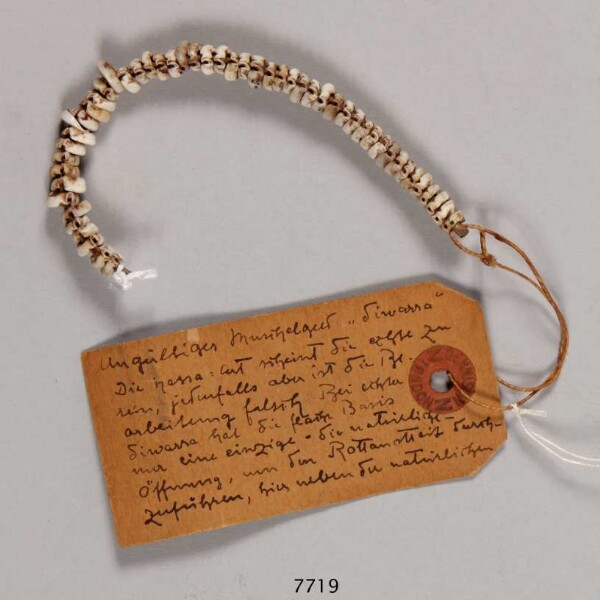 Ungültiges Muschelgeld „Diwarra“
Die Nassa-Art scheint die echte zu
sein, jedenfalls aber ist die Be-
arbeitung falsch. Bei echter
Diwarra hat die flache Basis
nur eine einzige - die natürliche -
Öffnung, um den durch-
zuführen, hier neben der natürlichen
7719